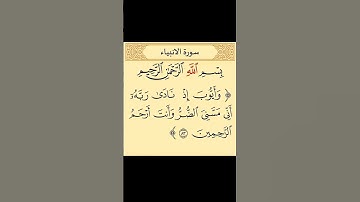 سورة الانبياء
بِسْمِ اللَّهِ الرَّحْمَٰنِ الرَّحِيمِ
﴿ وَأَيُّوبَ إِذْ نَادَىٰ رَبَّهُۥ
أَنِّي مَسَّنِيَ الضُّرُّ وَأَنتَ أَرْحَمُ
الرَّٰحِمِينَ ٨٣ ﴾